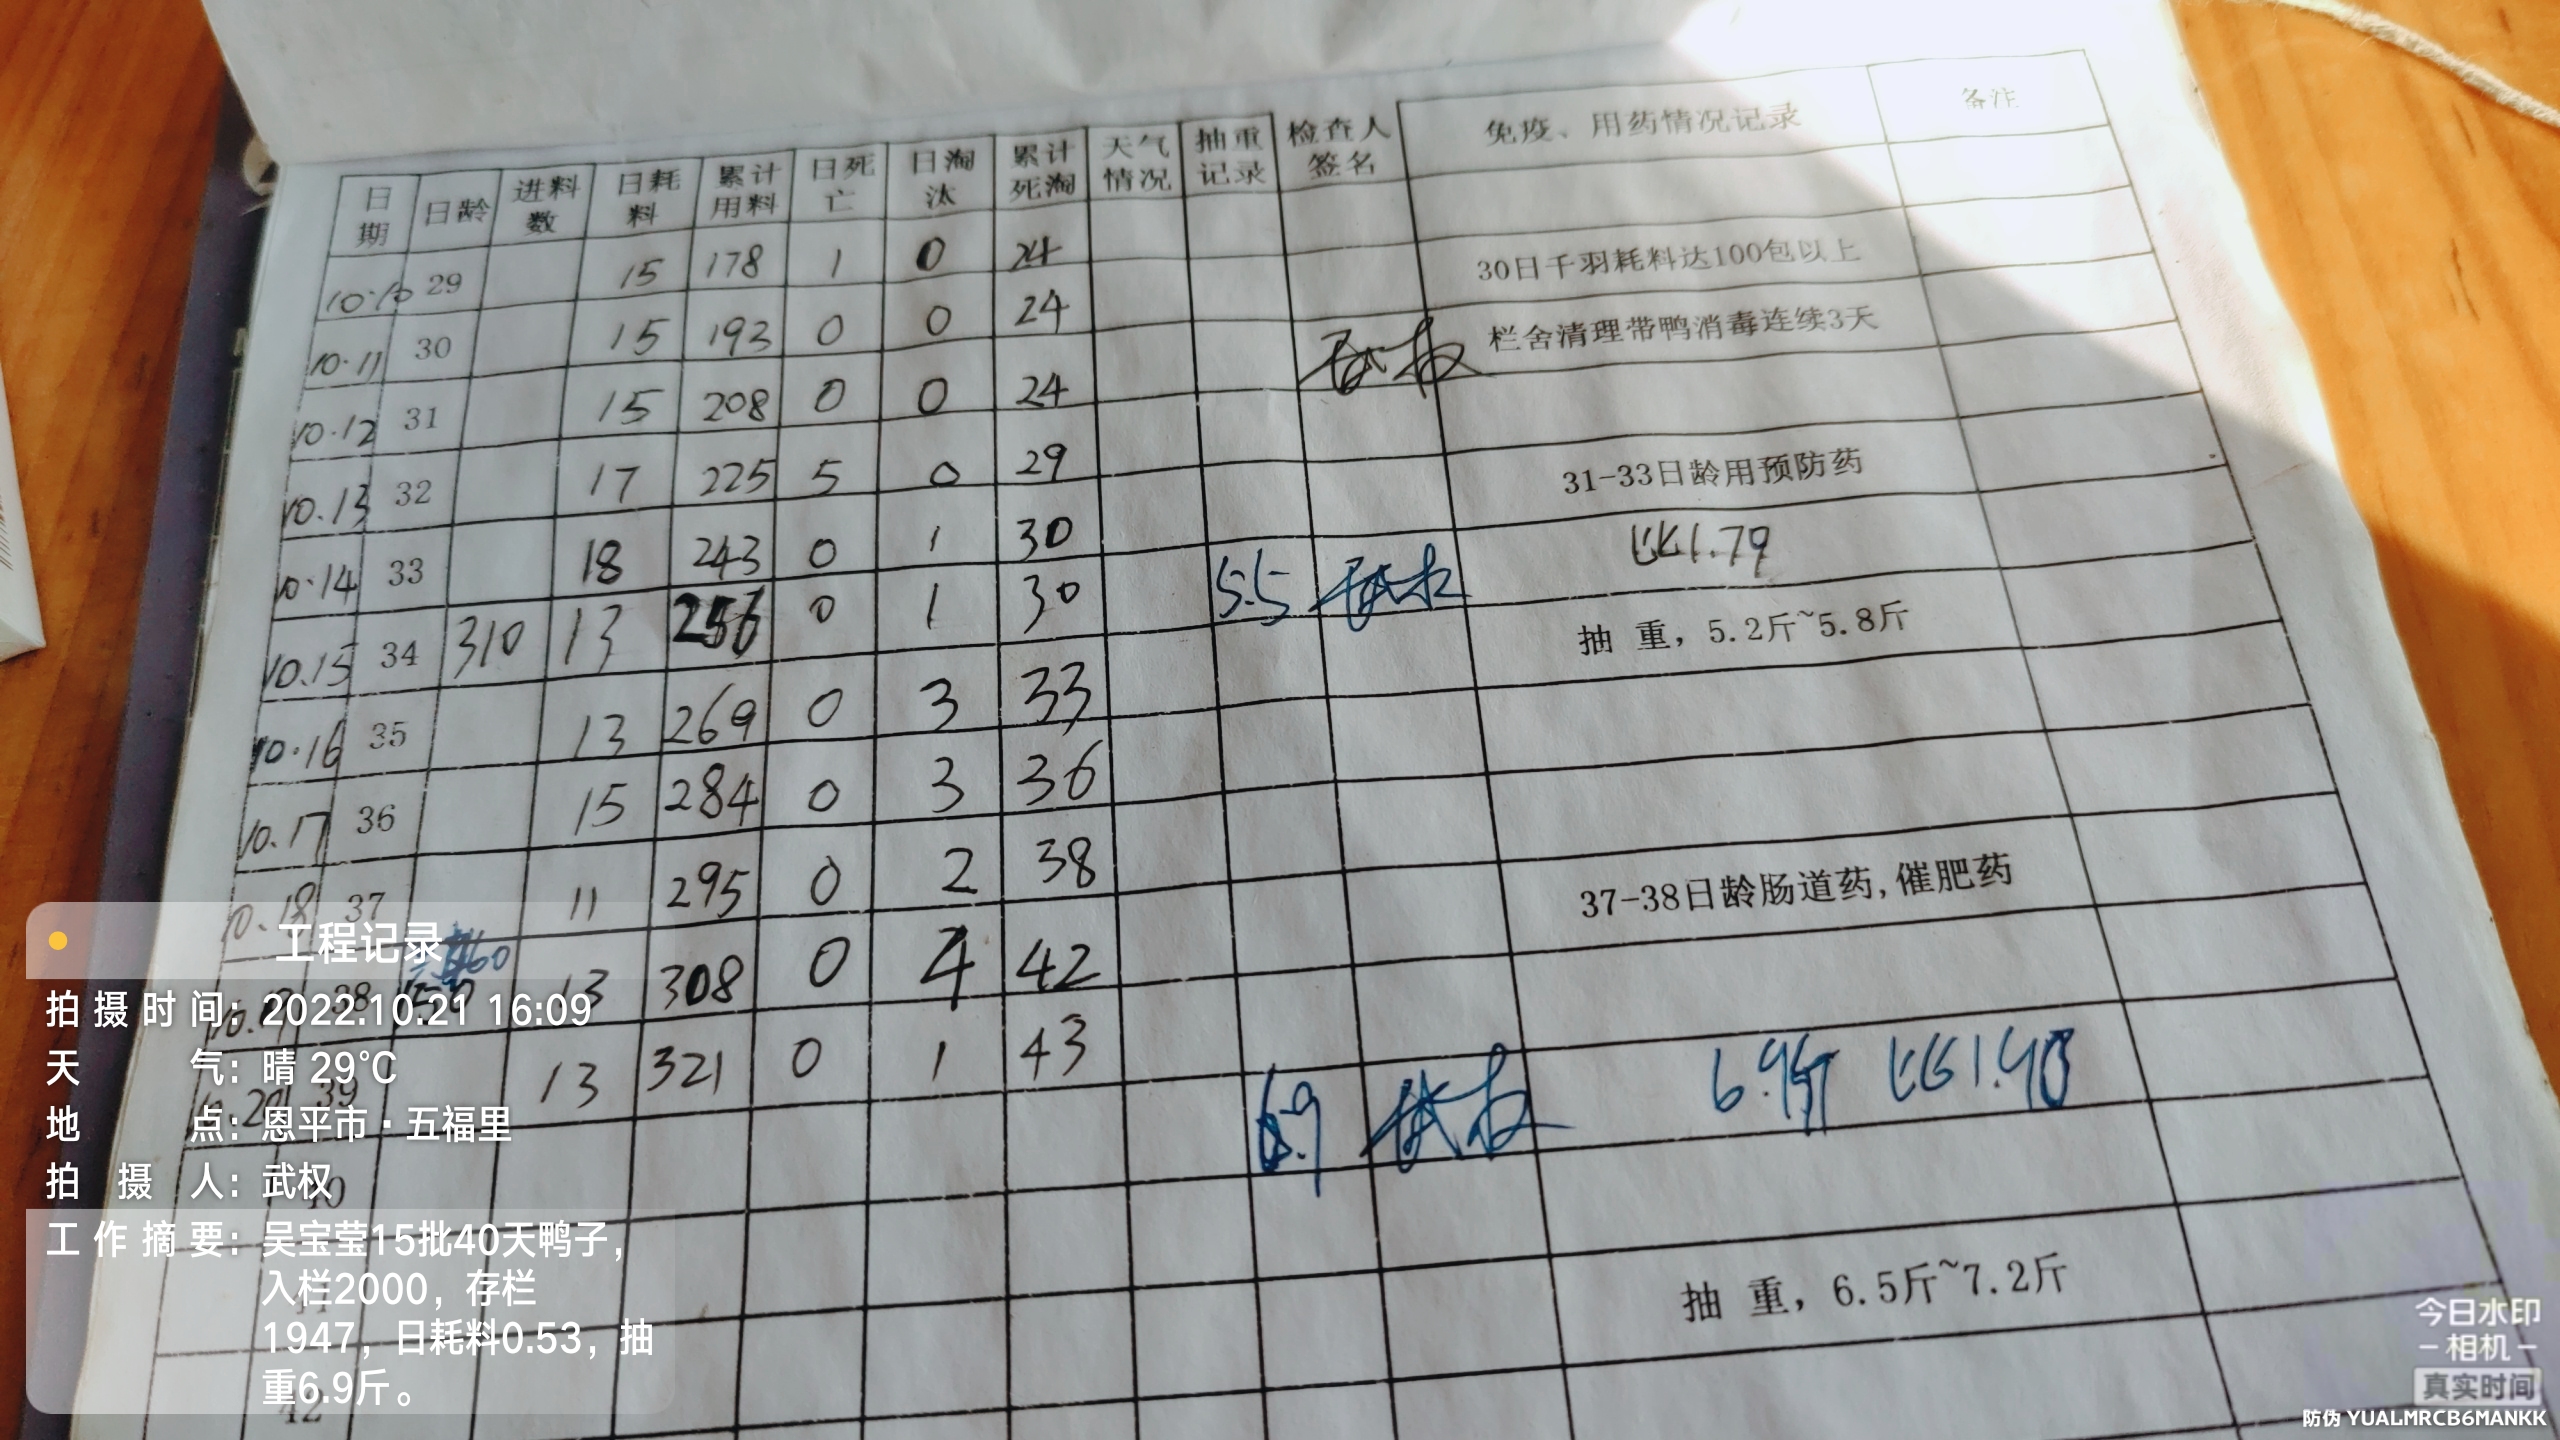 日期 日龄 进料数 日耗料 累计用料 日死亡 日淘汰 累计死淘 天气情况 抽重记录 检查人签名 免疫、用药情况记录 备注
10.10 29 15 178 1 0 24
30日千羽耗料达100包以上
10.11 30 15 193 0 0 24
栏舍清理带鸭消毒连续3天
10.12 31 15 208 0 0 24 武权
10.13 32 17 225 5 0 29
31-33日龄用预防药
10.14 33 18 243 0 1 30
比1.79
10.15 34 310 13 256 0 1 30 5.5 武权
抽 重，5.2斤~5.8斤
10.16 35 13 269 0 3 33
10.17 36 15 284 0 3 36
10.18 37 11 295 0 2 38
37-38日龄肠道药,催肥药
38 13 308 0 4 42
39 13 321 0 1 43
6.9 武权 6.9斤
40
抽 重，6.5斤~7.2斤
42
工程记录
拍摄时间：2022.10.21 16:09
天气：晴 29℃
地点：恩平市·五福里
拍摄人：武权
工作摘要：吴宝莹15批40天鸭子，
入栏2000，存栏
1947，日耗料0.53，抽
重6.9斤。
今日水印
相机
真实时间
防伪 YUALMRCB6MANKK